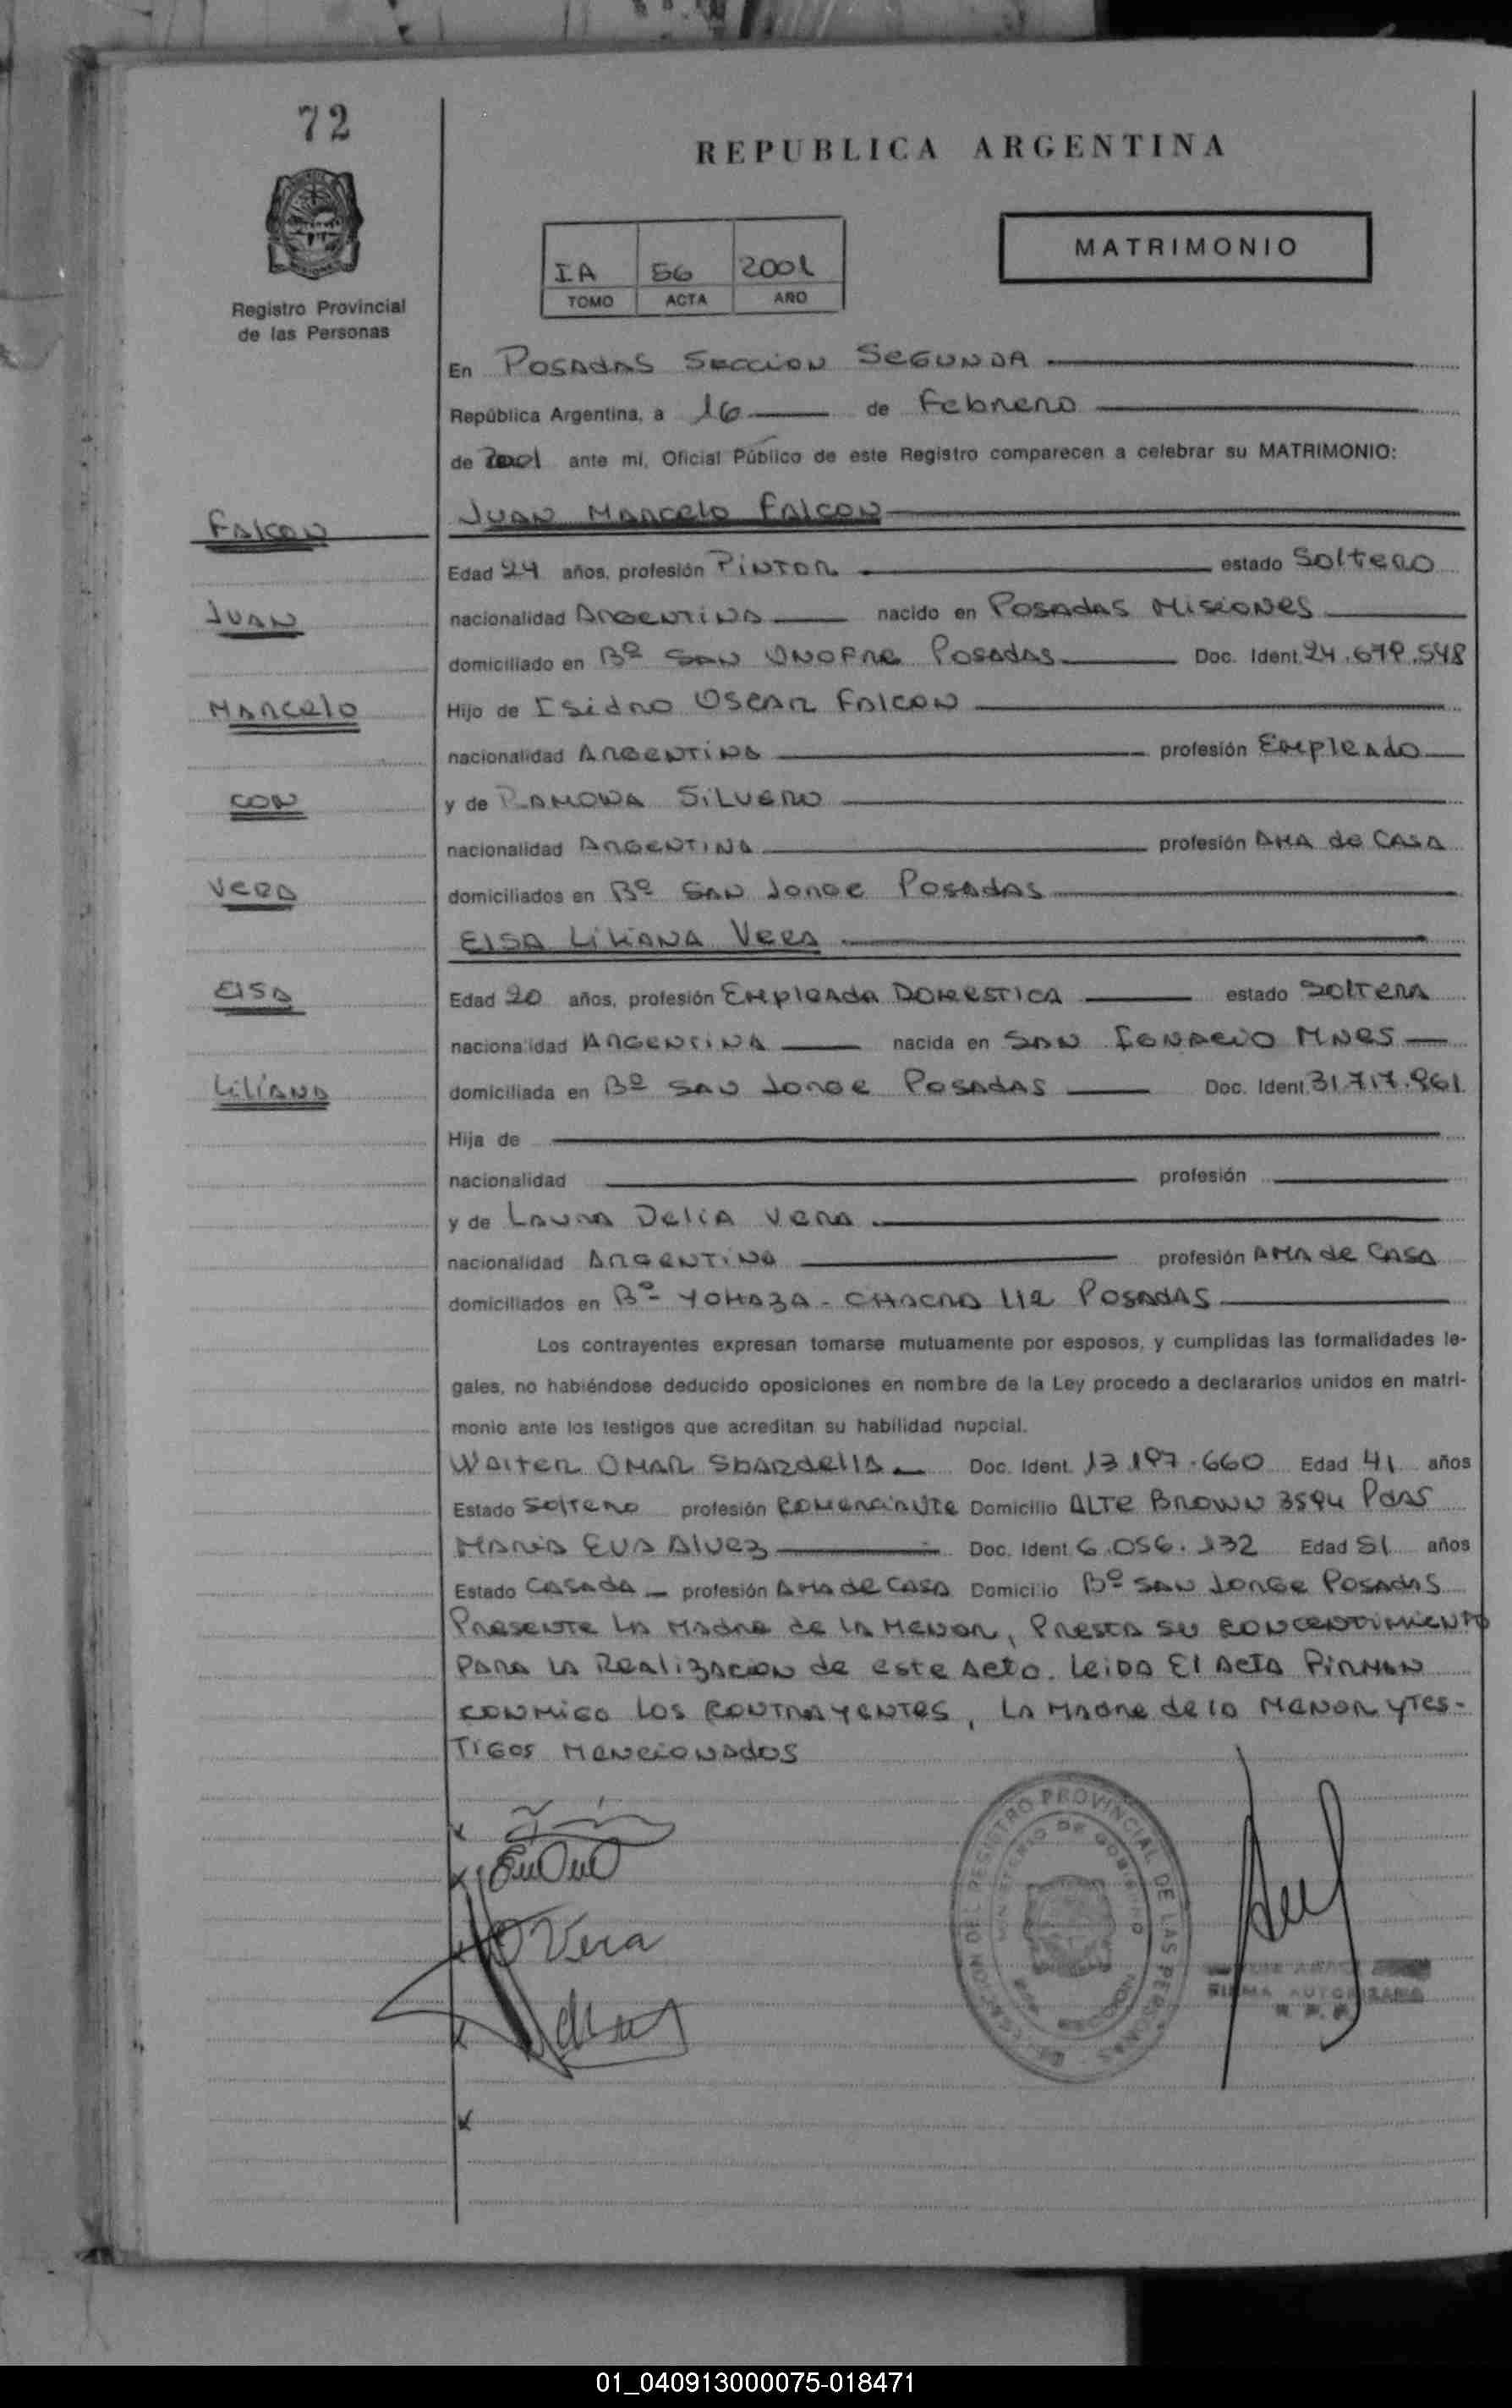 72
REPUBLICA ARGENTINA
MATRIMONIO
IA 56 2001
TOMO ACTA AÑO
Registro Provincial
de las Personas
En Posadas Seccion Segunda
República Argentina, a 16 de Febrero
de 2001 ante mi, Oficial Público de este Registro comparecen a celebrar su MATRIMONIO:
Falcon
Juan Marcelo Falcon
Edad 24 años, profesión Pintor estado Soltero
Juan
nacionalidad Argentina nacido en Posadas Misiones
domiciliado en Bº San Onofre Posadas Doc. Ident. 24.679.548
Marcelo
Hijo de Isidro Oscar Falcon
nacionalidad Argentina profesión Empleado
con
y de Ramona Silvero
nacionalidad Argentina profesión Ama de Casa
Vera
domiciliados en Bº San Jorge Posadas
Elsa Liliana Vera
Elsa
Edad 20 años, profesión Empleada Domestica estado Soltera
nacionalidad Argentina nacida en San Ignacio Mnes
Liliana
domiciliada en Bº San Jorge Posadas Doc. Ident. 31.717.961
Hija de
nacionalidad profesión
y de Laura Delia Vera
nacionalidad Argentina profesión Ama de Casa
domiciliados en Bº Yohaza - Chacra 112 Posadas
Los contrayentes expresan tomarse mutuamente por esposos, y cumplidas las formalidades le-
gales, no habiéndose deducido oposiciones en nombre de la Ley procedo a declararlos unidos en matri-
monio ante los testigos que acreditan su habilidad nupcial.
Walter Omar Sbardella Doc. Ident. 13.197.660 Edad 41 años
Estado Soltero profesión Comerciante Domicilio Alte Brown 3594 Pdas
Maria Eva Alvez Doc. Ident. 6.056.132 Edad 51 años
Estado Casada profesión Ama de Casa Domicilio Bº San Jorge Posadas
Presente la Madre de la Menor, Presta su concentimiento
Para la Realizacion de este Acto. Leida El Acta Firman
conmigo los contrayentes, La Madre de la Menor y Tes-
Tigos Mencionados
Vera
DIRECCION DEL REGISTRO PROVINCIAL DE LAS PERSONAS
MINISTERIO DE GOBIERNO
FIRMA AUTORIZADA
R. P. P.
01_040913000075-018471